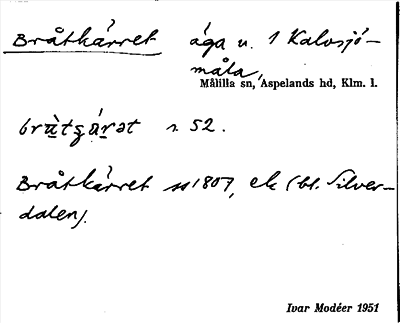 Bråtkärret äga u. 1 Kalvsjö-
måla,
Målilla sn, Aspelands hd, Klm. l.
s. 52.
Bråtkärret 1807, ek (bl. Silver-
dalen).
Ivar Modéer 1951